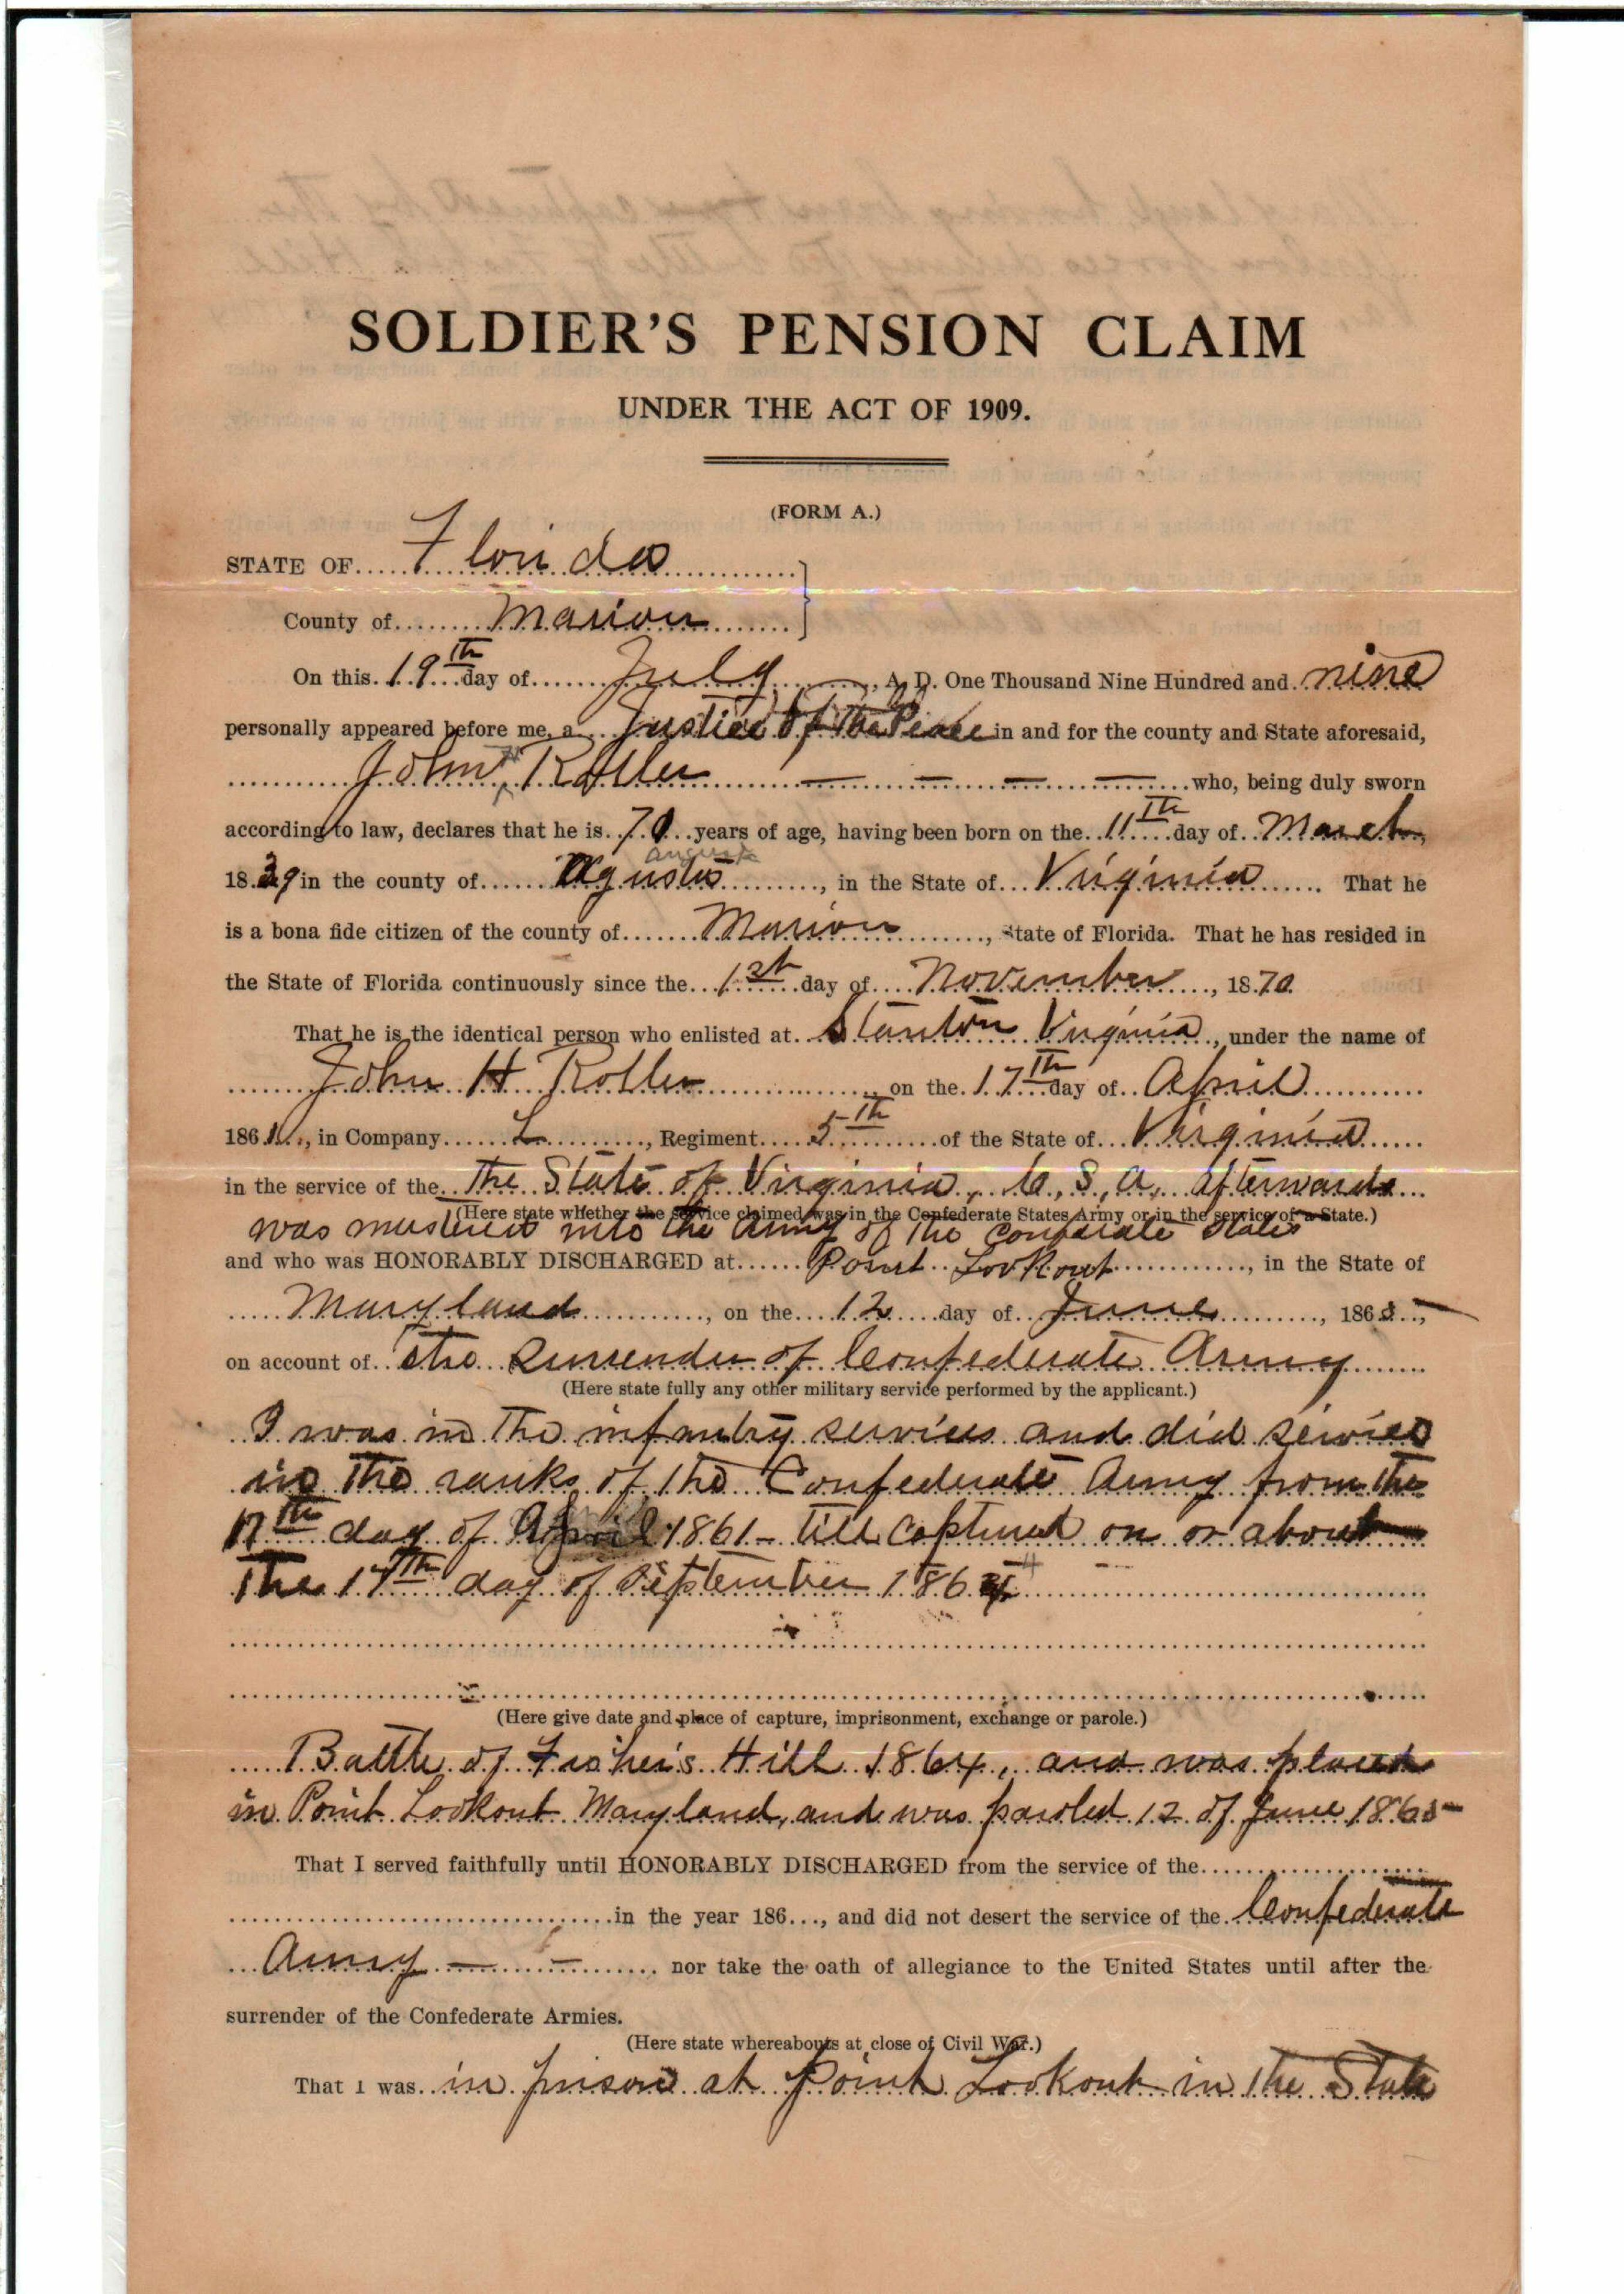 SOLDIER'S PENSION CLAIM
UNDER THE ACT OF 1909.
(FORM A.)
STATE OF Florida
County of Marion
On this 19th day of July, A. D. One Thousand Nine Hundred and nine
personally appeared before me, a Justice of the Peace in and for the county and State aforesaid,
John H Roller who, being duly sworn
according to law, declares that he is 70 years of age, having been born on the 11th day of March,
1839 in the county of Agusta Augusta, in the State of Virginia. That he
is a bona fide citizen of the county of Marion, State of Florida. That he has resided in
the State of Florida continuously since the 1st day of November, 1870.
That he is the identical person who enlisted at Stanton Virginia, under the name of
John H Roller, on the 17th day of April
1861, in Company L, Regiment 5th of the State of Virginia
in the service of the The State of Virginia, C, S, A, afterwards
(Here state whether the service claimed was in the Confederate States Army or in the service of a State.)
was mustered into the army of the Confederate States
and who was HONORABLY DISCHARGED at Point Lookout, in the State of
Maryland, on the 12 day of June, 1865,
on account of the Surrender of Confederate Army
(Here state fully any other military service performed by the applicant.)
I was in the infantry services and did service
in the ranks of the Confederate Army from the
17th day of April 1861 - till captured on or about
The 17th day of September 1864 4
(Here give date and place of capture, imprisonment, exchange or parole.)
Battle of Fisher's Hill 1864, and was placed
in Point Lookout Maryland, and was paroled 12 of June 1865
That I served faithfully until HONORABLY DISCHARGED from the service of the
in the year 186..., and did not desert the service of the Confederate
Army nor take the oath of allegiance to the United States until after the
surrender of the Confederate Armies.
(Here state whereabouts at close of Civil War.)
That I was in prison at Point Lookout in the State